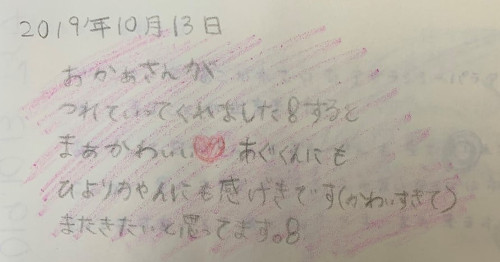 2019年10月13日
おかあさんが
つれていってくれました8すると
まぁかわいい あぐくんにも
ひよりちゃんにも感げきです(かわいすぎて)
またきたいと思ってます。8